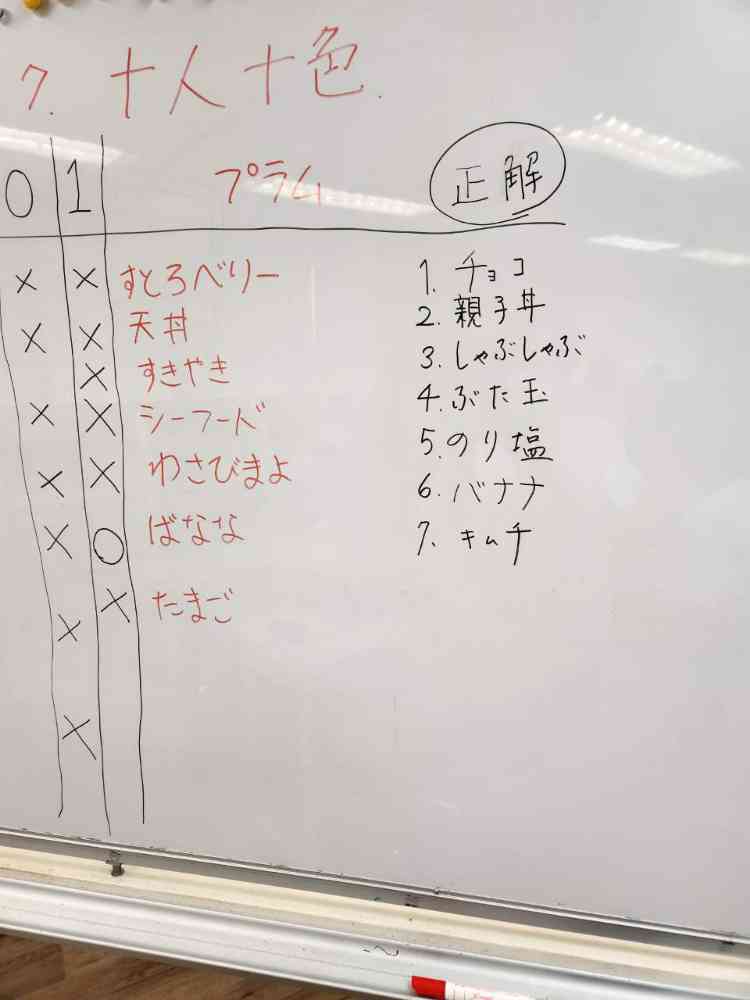 7. 十人十色.
0 1 プラム 正解
× × すとろベリー 1. チョコ
× × 天丼 2. 親子丼
× すきやき 3. しゃぶしゃぶ
× × シーフード 4. ぶた玉
× × わさびまよ 5. のり塩
× ○ ばなな 6. バナナ
× × たまご 7. キムチ
×